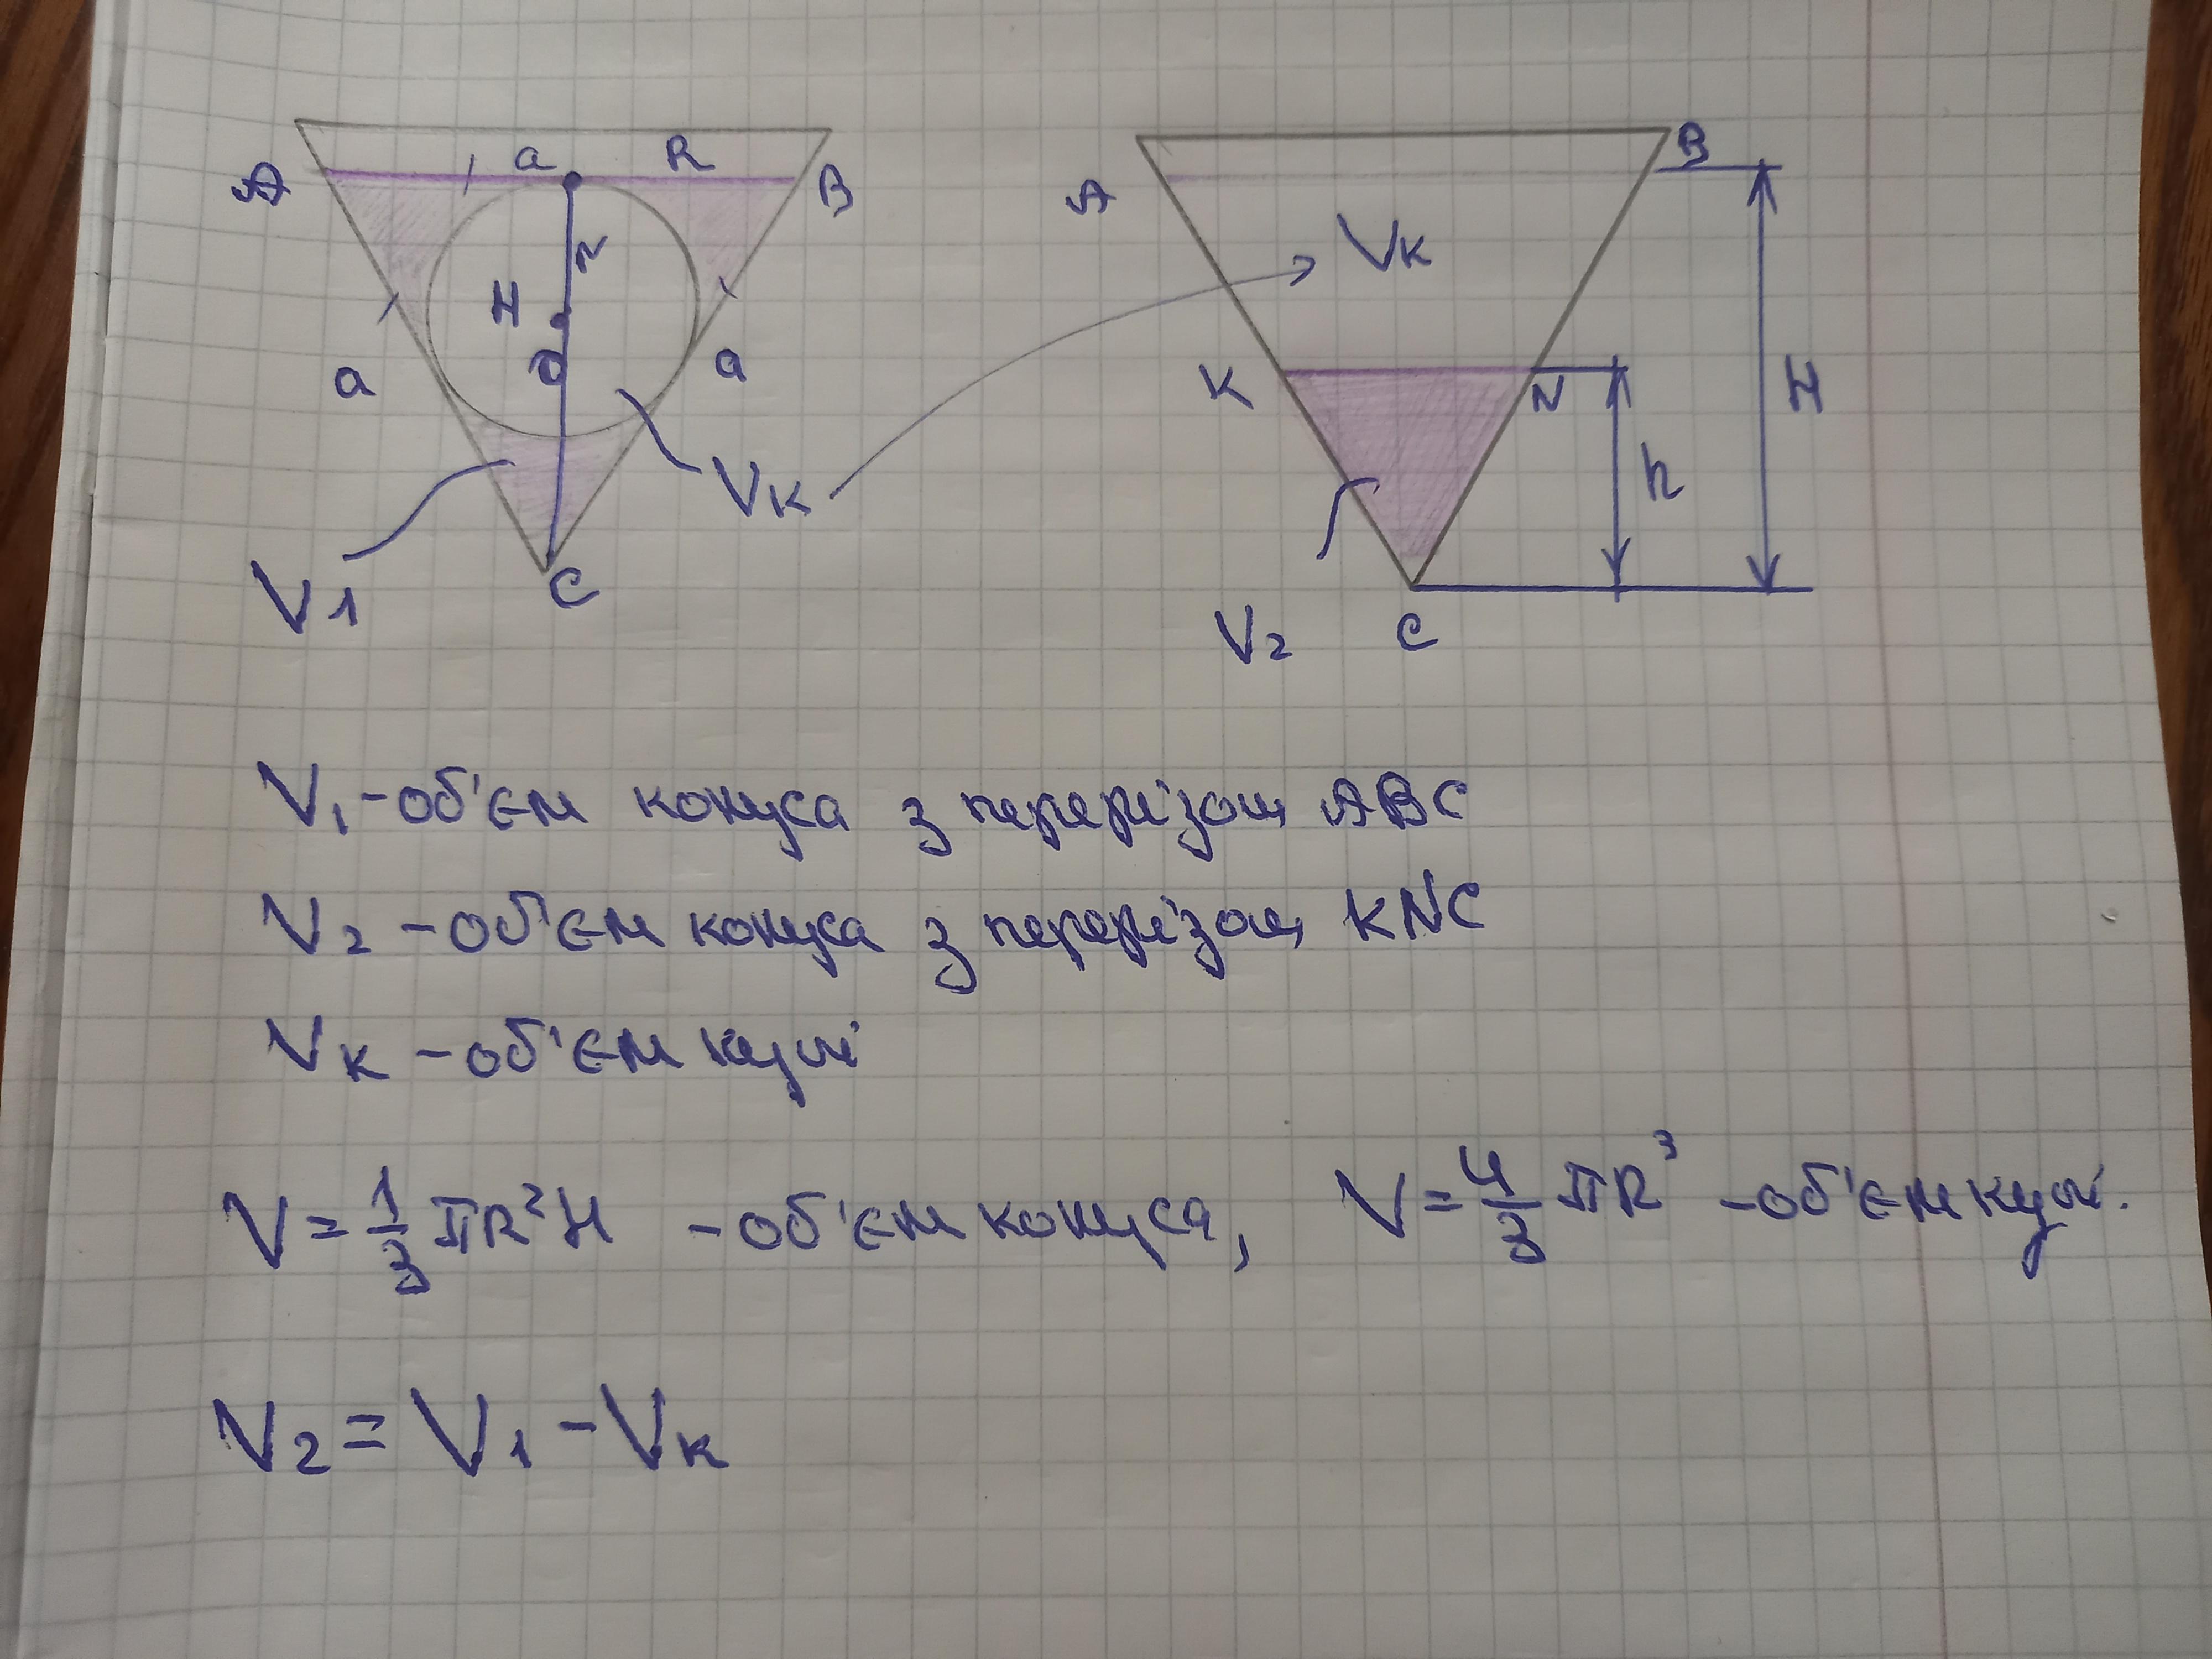 a R
A B
r
H
O
a a
Vк
V1
C
B
A
Vк
K N
H
h
V2 C
V1 - об'єм конуса з перерізом ABC
V2 - об'єм конуса з перерізом KNC
Vк - об'єм кулі
V = 1/3 πR²H - об'єм конуса, V = 4/3 πR³ - об'єм кулі.
V2 = V1 - Vк